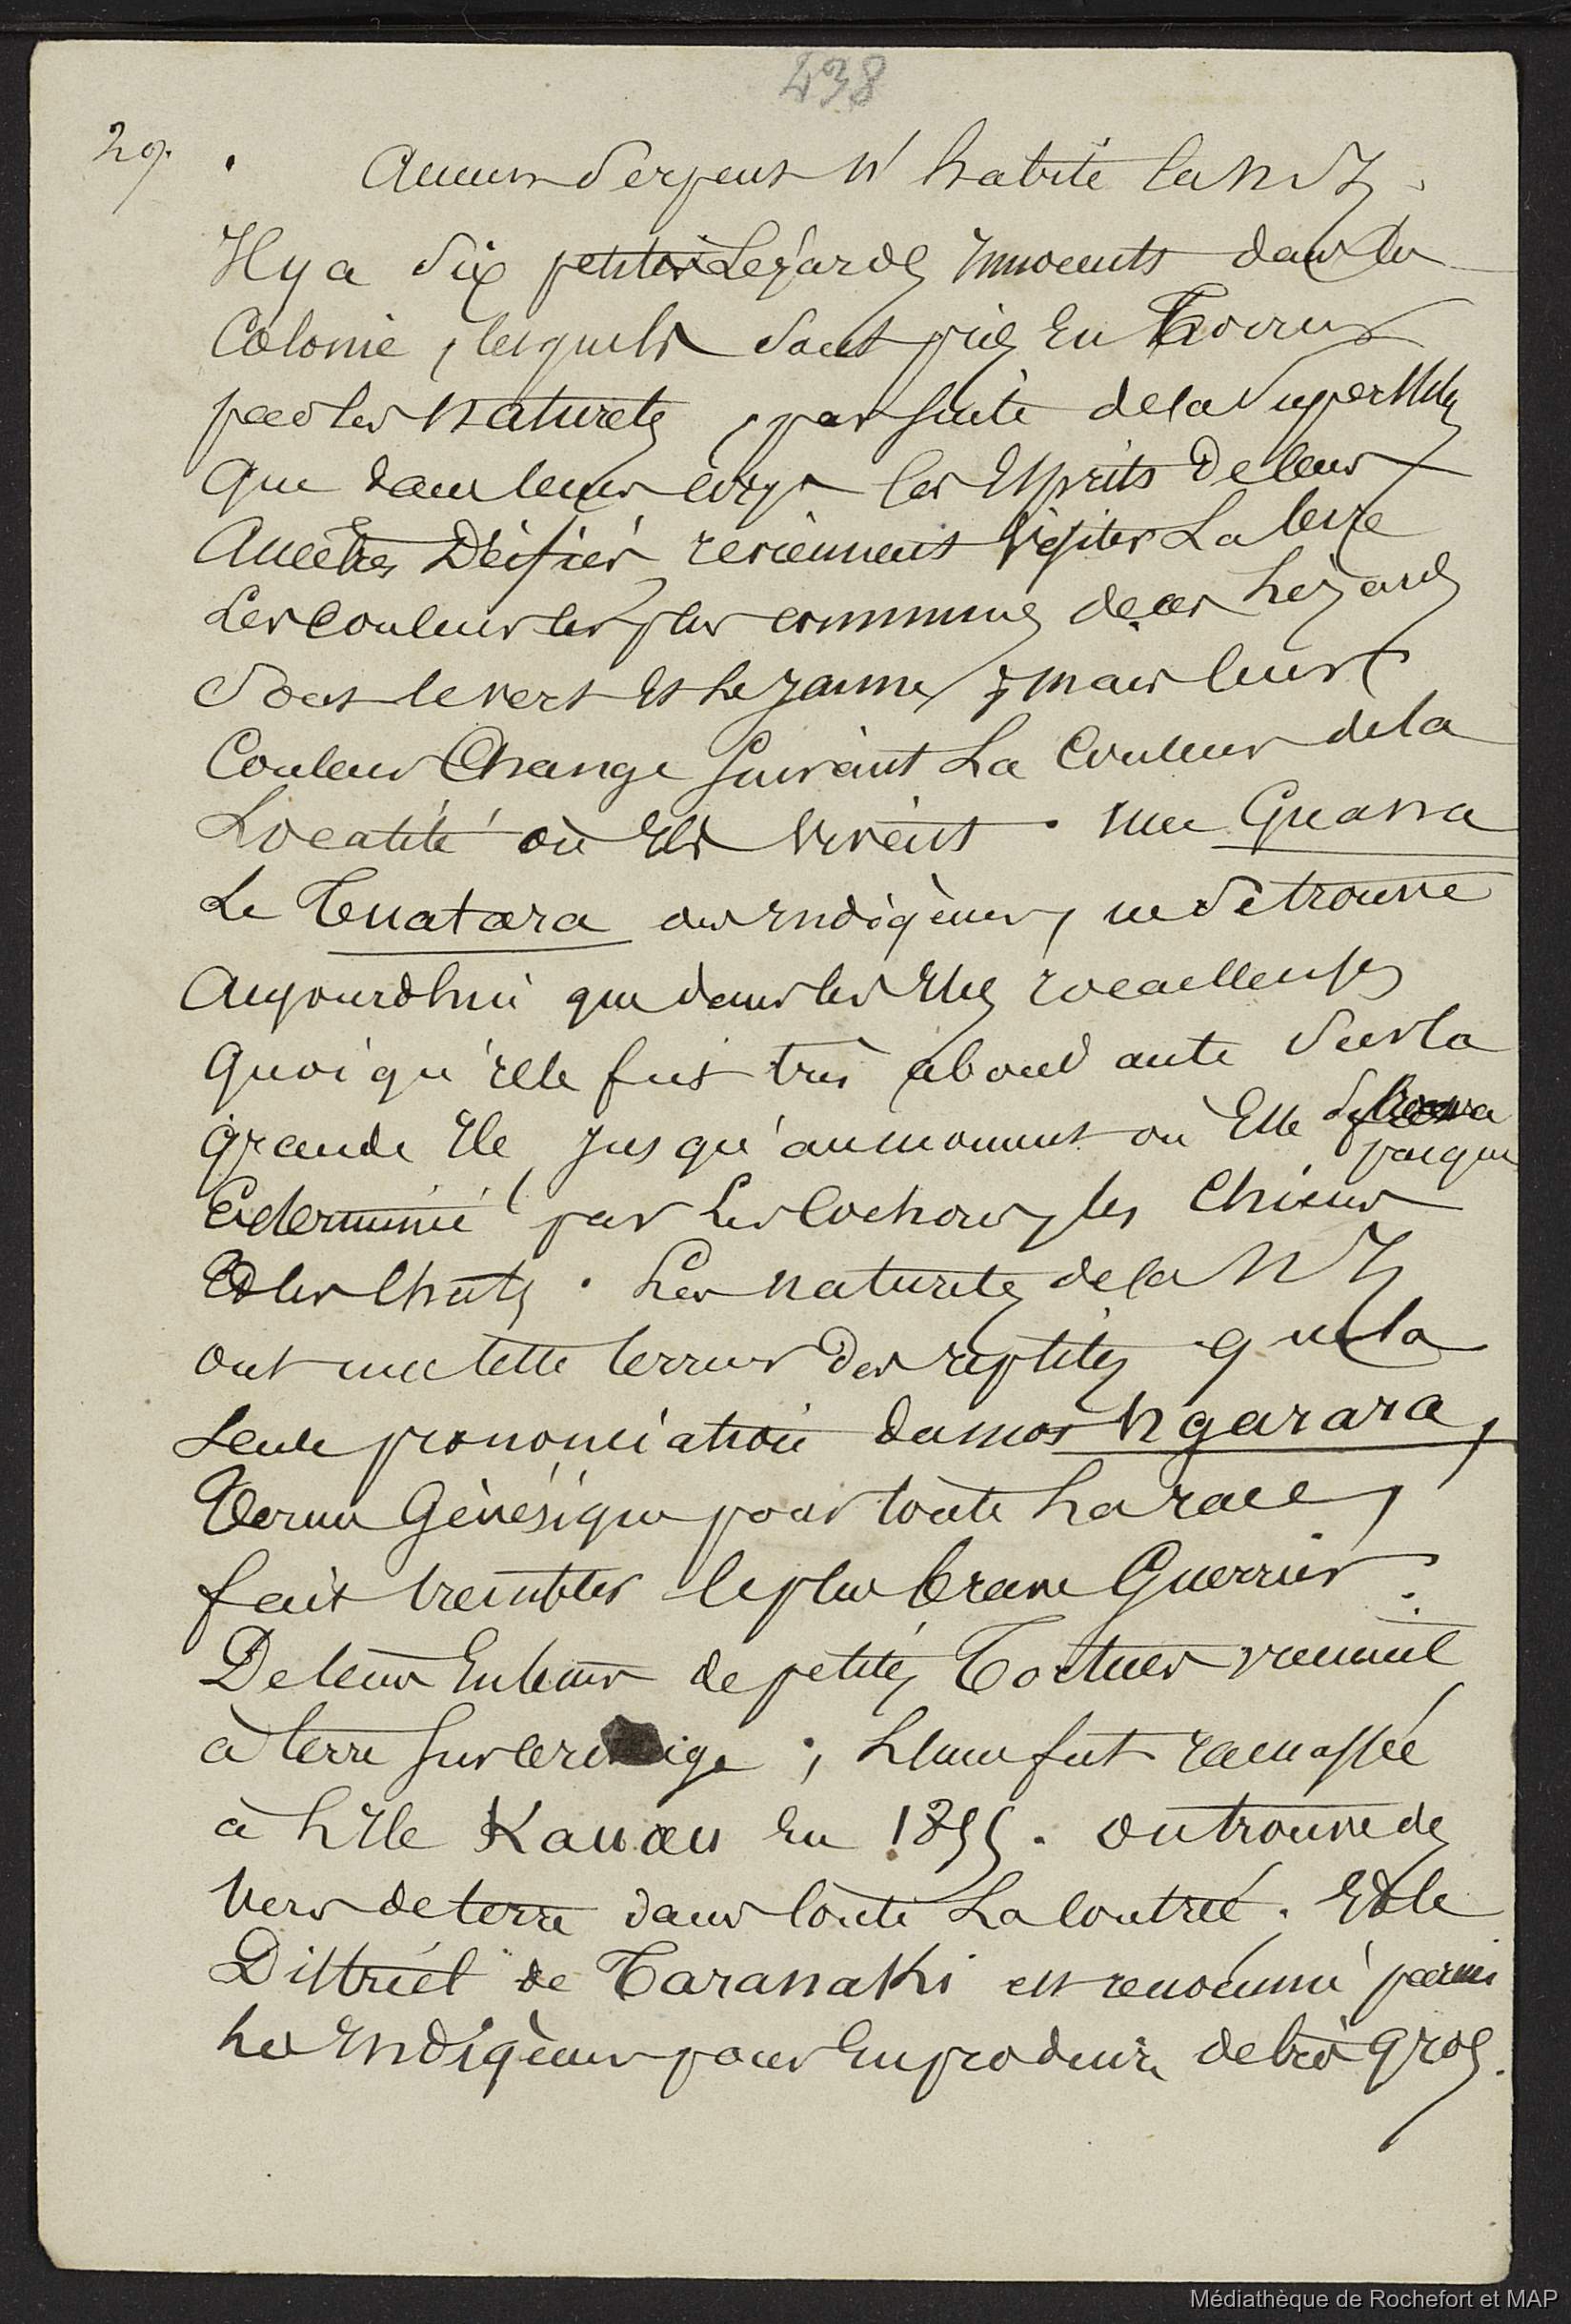 438
29.
Aucun Serpent n'habite la N Z.
Il y a Six petits Lézards Innocents dans la
Colonie, lesquels sont pris en horreur
par les naturels, par suite de la Superstition
que dans leurs corps les Esprits de leurs
Ancêtres Déifiés reviennent visiter La terre
Les couleurs les plus communes de ces Lézards
Sont le vert et le jaune, mais leur
Couleur Change suivant La Couleur de la
Localité où Ils vivent. une Guana
Le Tuatara des Indigènes, ne se trouve
Aujourdhui que dans les Iles rocailleuses
quoiqu'elle fut très abondante sur la
grande Ile jusqu'au moment où Elle
presque
Exterminé par Les Cochons, les Chiens
Et les Chats. Les naturels de la N Z
ont une telle terreur des reptiles que la
seule prononciation du mot Ngarara,
Terme Générique pour toute La race,
fait trembler le plus brave Guerrier.
De temps En temps de petites Tortues viennent
à terre sur le rivage; L'une fut ramassée
à L'Ile Kawau En 1855. on trouve des
Vers de terre dans toute La Contrée. Et le
District de Taranaki est renommé parmi
Les Indigènes pour En produire de très gros.
Médiathèque de Rochefort et MAP